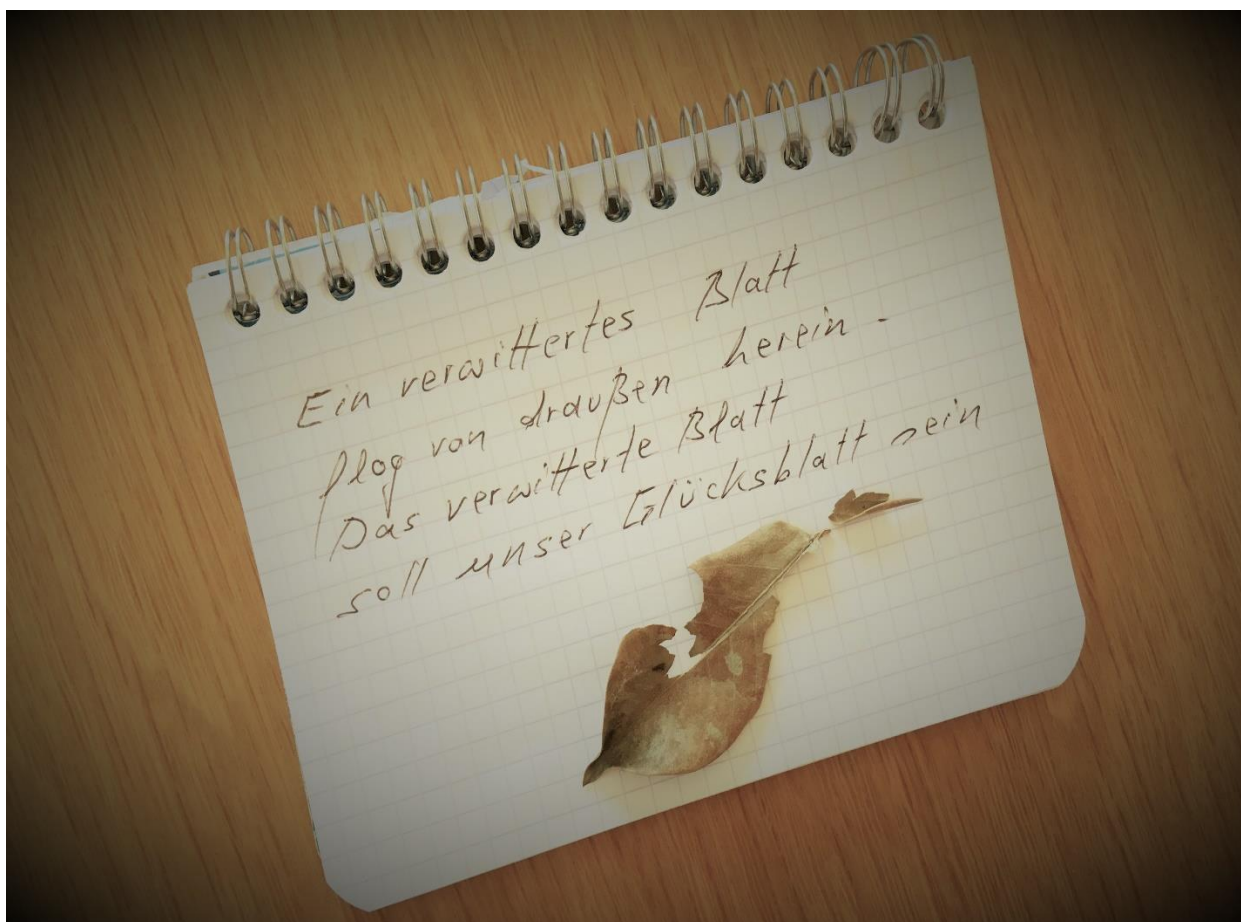 Ein verwittertes Blatt
flog von draußen herein -
Das verwitterte Blatt
soll unser Glücksblatt sein